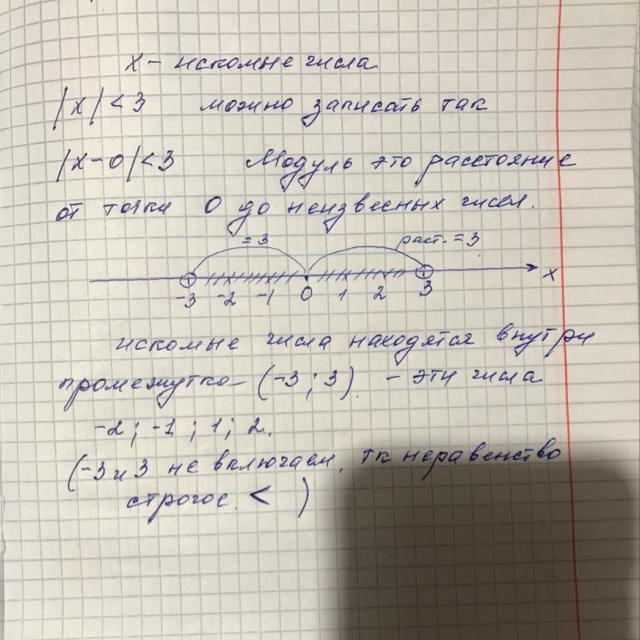 x – искомые числа
|x| < 3 можно записать так
|x-0| < 3 Модуль это расстояние
от точки 0 до неизвесных чисел.
= 3 раст. = 3
-3 -2 -1 0 1 2 3 x
искомые числа находятся внутри
промежутка (-3; 3). – эти числа
-2; -1; 1; 2.
(-3 и 3 не включаем, тк неравенство
строгое. < )